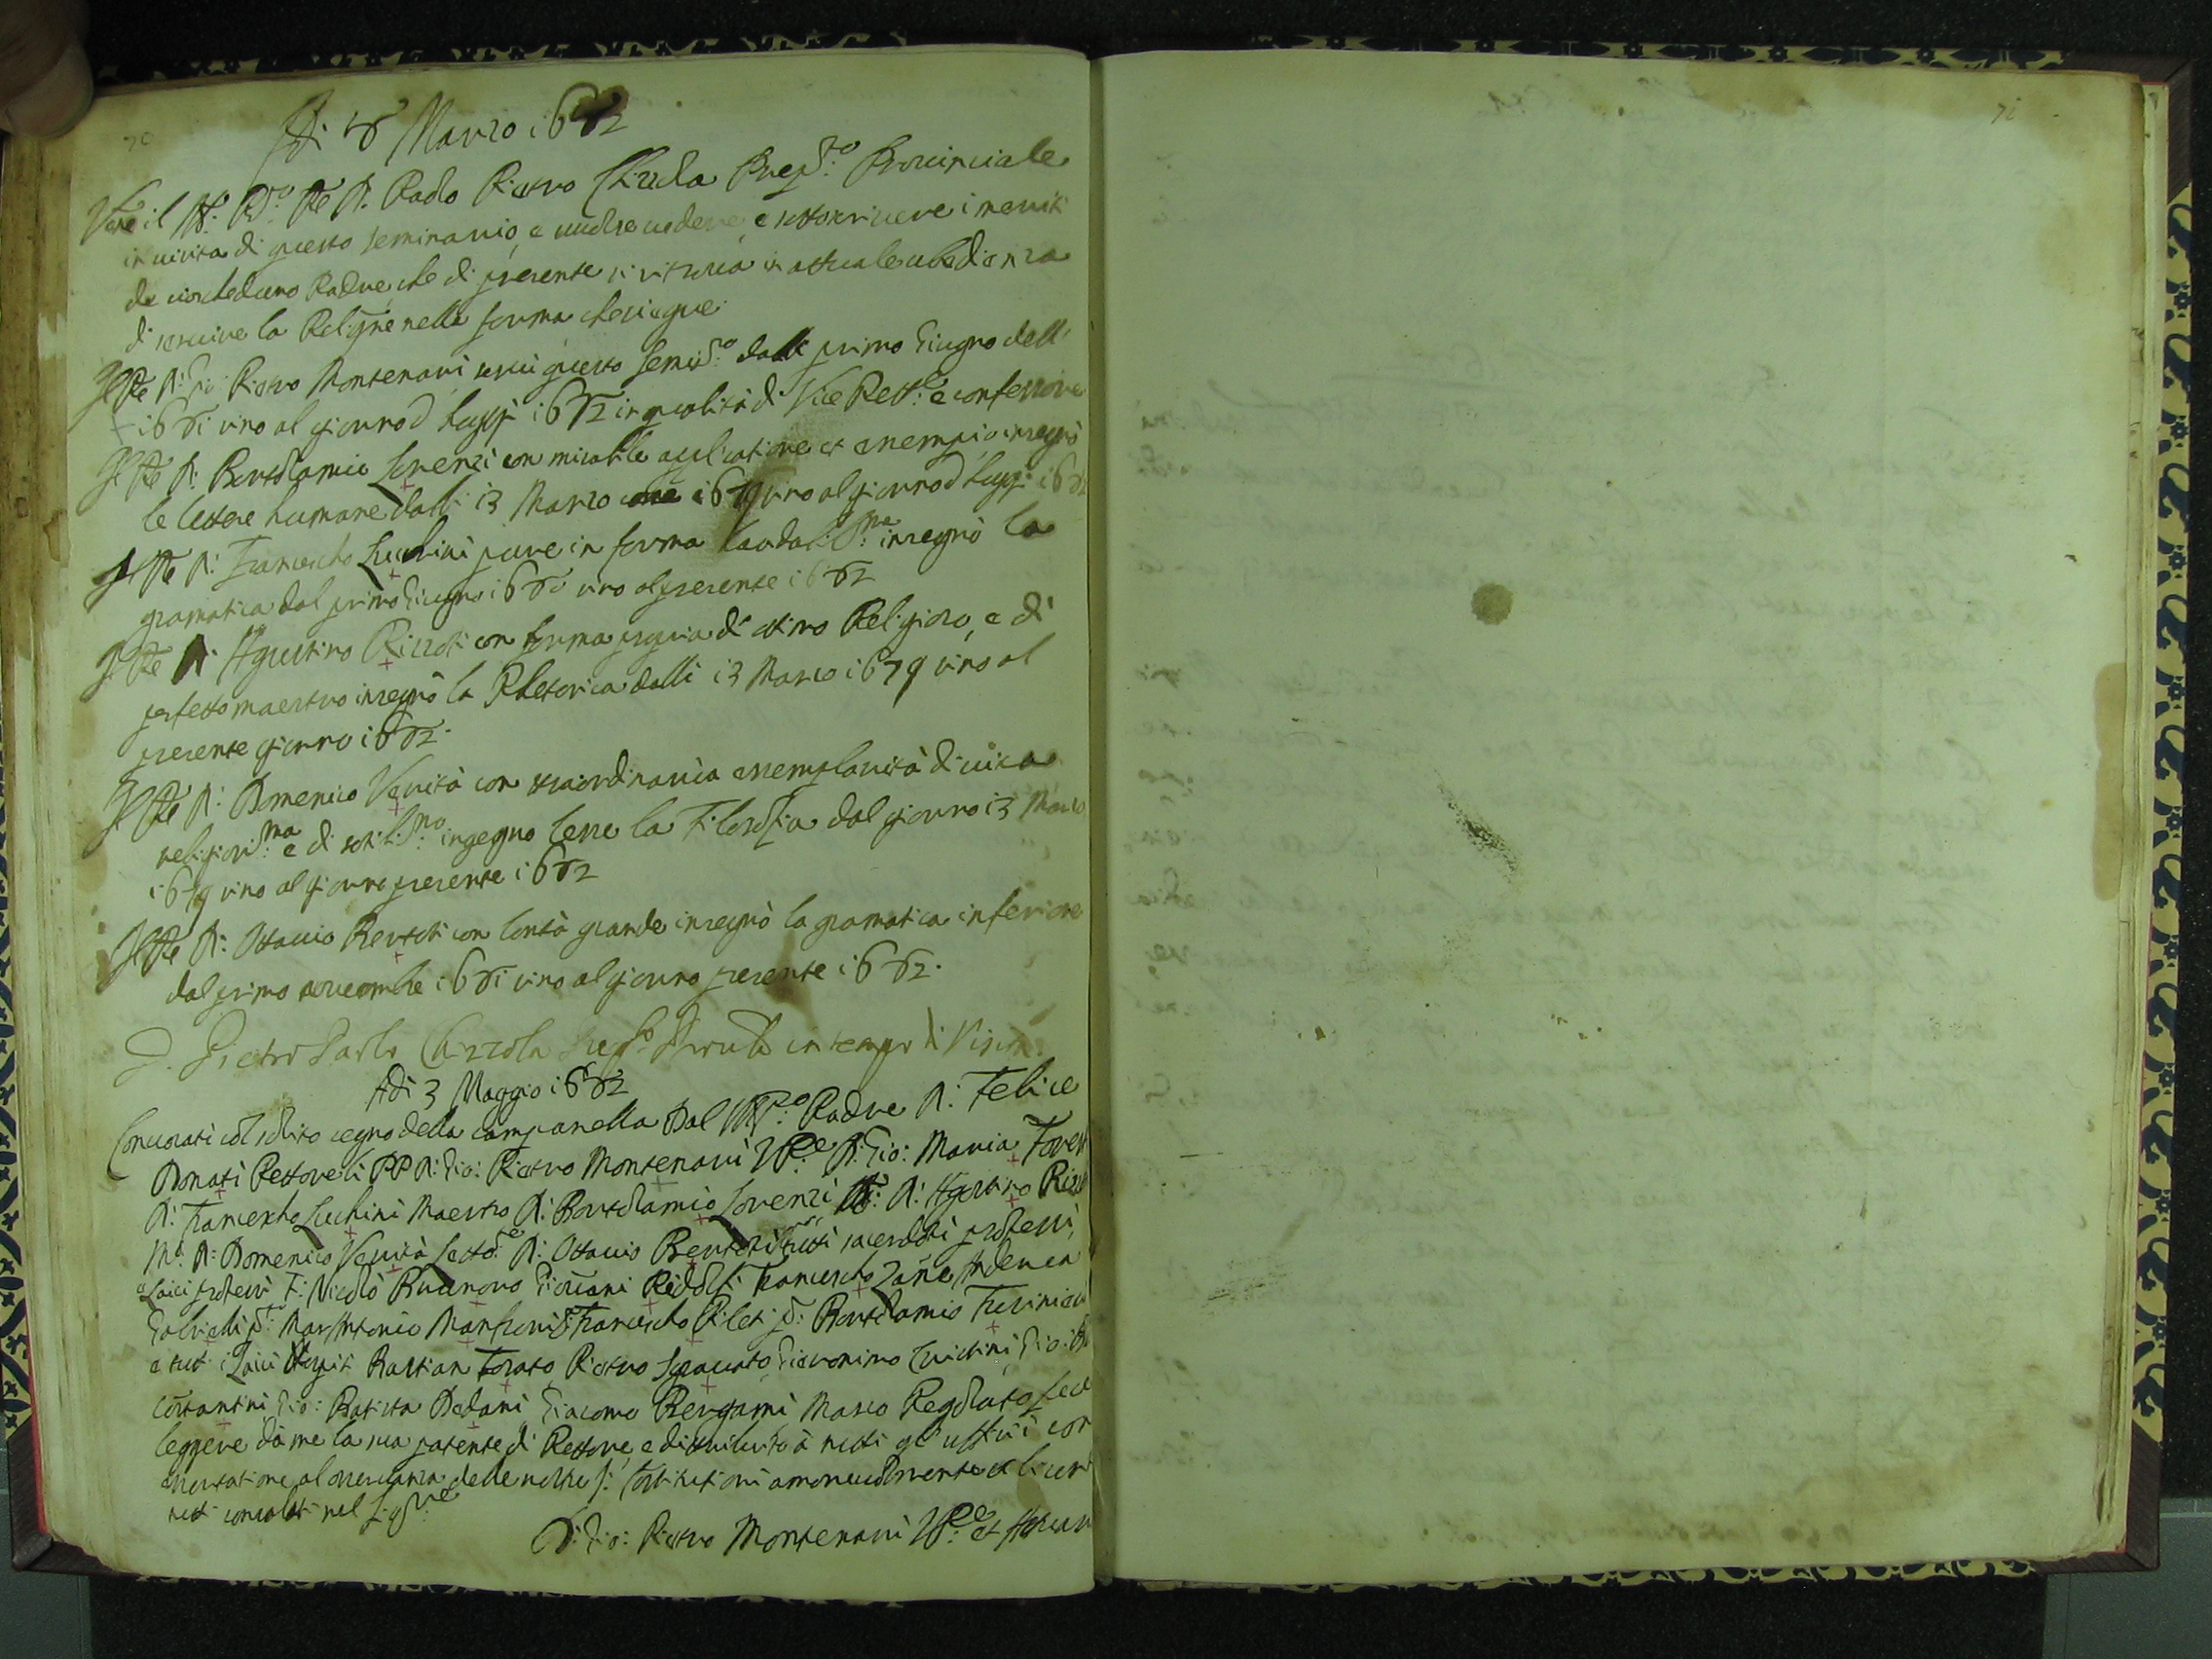 70
Adi 8 Marzo 1682
Vene il M. R.do Pre D. Paolo Pietro Chizzola Prep.to Provinciale
in visita di questo seminario, e volse vedere, e sottoscrivere i meriti
de ciascheduno Padre, che di presente si ritrova in attuale ubedienza
di servire la Religne nella forma che siegue
Il Pre D: Gio: Pietro Montenari servì questo Semin.o dalli primo Giugno dell'
1681 sino al giorno d'hoggi 1682 in qualità di Vice Rett.e e confessore
Il Pre D: Bortolamio Lorenzi con mirabile aplicatione et essempio insegnò
le lettere humane dalli 13 Marzo 1679 sino al giorno d'hoggi 1682
Il Pre D: Francescho Luchini pure in forma laudabil.ma insegnò la
gramatica dal primo Giugno 1680 sino al presente 1682
Il Pre D: Agustino Rizzoti con forma propria di ottimo Religioso, e di
perfetto maestro insegnò la Rhetorica dalli 13 Marzo 1679 sino al
presente giorno 1682.
Il Pre D: Domenico Verità con straordinaria essemplarità di vita
religiosis.ma e di sotilis.mo ingegno lesse la Filosofia dal giorno 13 Marzo
1679 sino al giorno presente 1682
Il Pre D: Ottavio Bertoli con bontà grande insegnò la gramatica inferiore
dal primo novembre 1681 sino al giorno presente 1682.
D. Pietro Paolo Chizzola Prep.to Provinle in tempo di Visita.
Adi 3 Maggio 1682
Convocati col solito segno della campanella Dal M. R.do Padre D: Felice
Donati Rettore li PP D: Gio: Pietro Montenari V.R.e D: Gio: Maria
D: Francescho Luchini Maestro D: Bortolamio Lorenzi M: D: Agostino
M: D: Domenico Verità Letto.re D: Ottavio Bertoli tutti sacerdoti professi,
e Laici professi F: Nicolò Giovani Ridolfi Francescho Zane Andrea
Gabrieli Marc'Antonio Manfroni Francescho Pileti Bortolamio
e tutti i Laici Ospiti Bastian Pietro Gieronimo
Costantini Gio: Batista Dedani Giacomo Bergami Marco Regolato
leggere da me la sua patente di Rettore, e distribuito à tutti gl'uffitii con
essortatione al osservanza delle nostre S: Constitutioni amorevolmente
tutti consolati nel Sig.re
D: Gio: Pietro Montenari V.R.e et
71